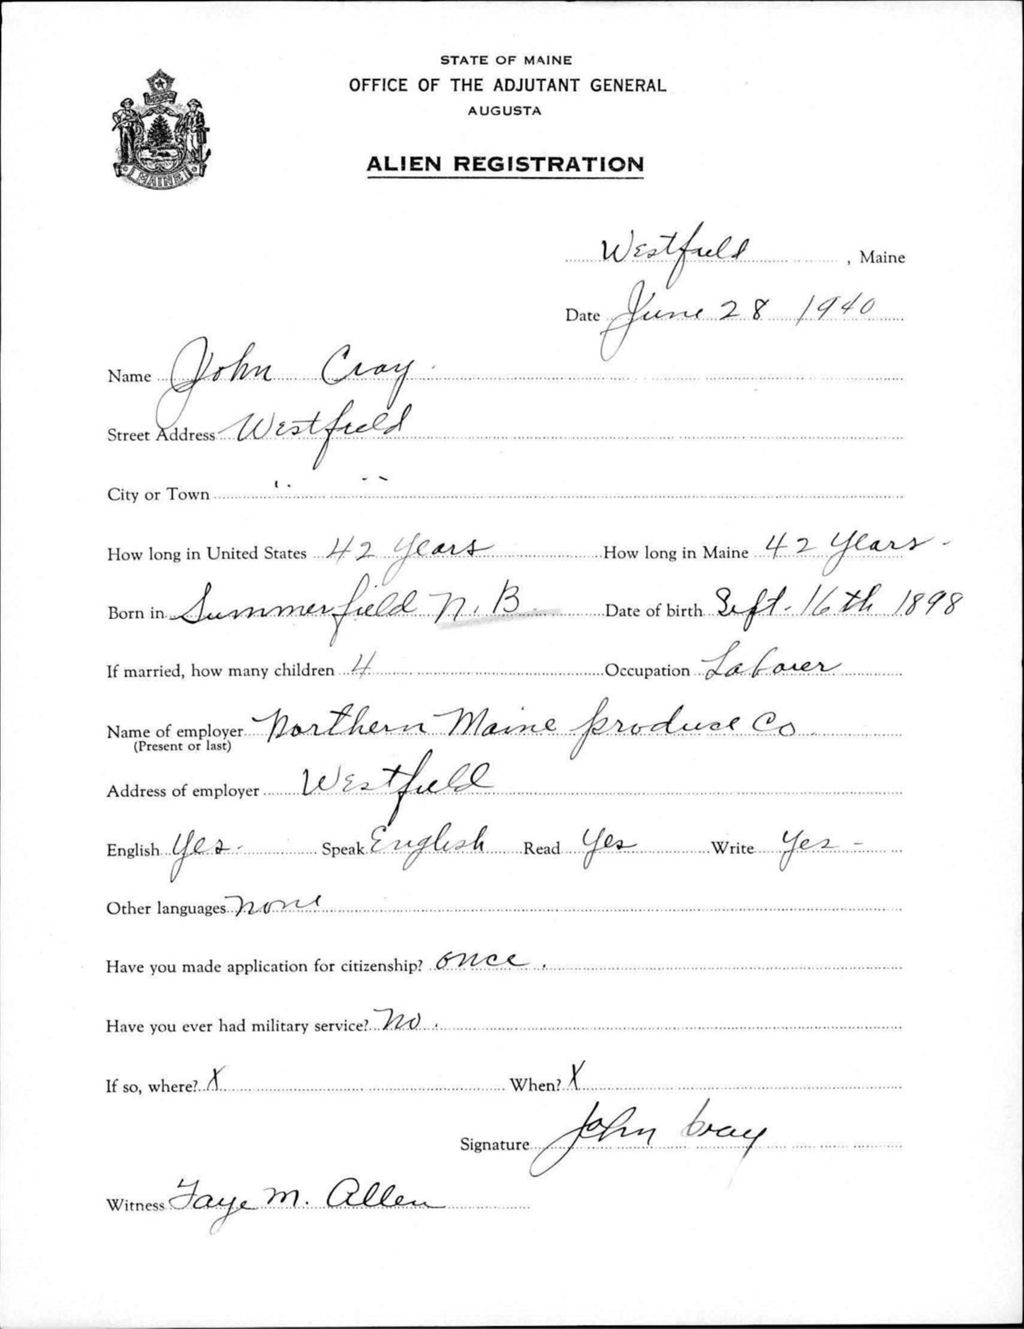 STATE OF MAINE
OFFICE OF THE ADJUTANT GENERAL
AUGUSTA
MAINE
ALIEN REGISTRATION
Westfield, Maine
Date June 28 1940
Name John Cray
Street Address Westfield
City or Town " "
How long in United States 42 years How long in Maine 42 years -
Born in Summerfield N. B Date of birth Sept. 16th 1898
If married, how many children 4 Occupation Laborer
Name of employer Northern Maine Produce Co
(Present or last)
Address of employer Westfield
English Yes. Speak English Read Yes Write Yes -
Other languages none
Have you made application for citizenship? once.
Have you ever had military service? No.
If so, where? X When? X
Signature John Cray
Witness Faye M. Allen